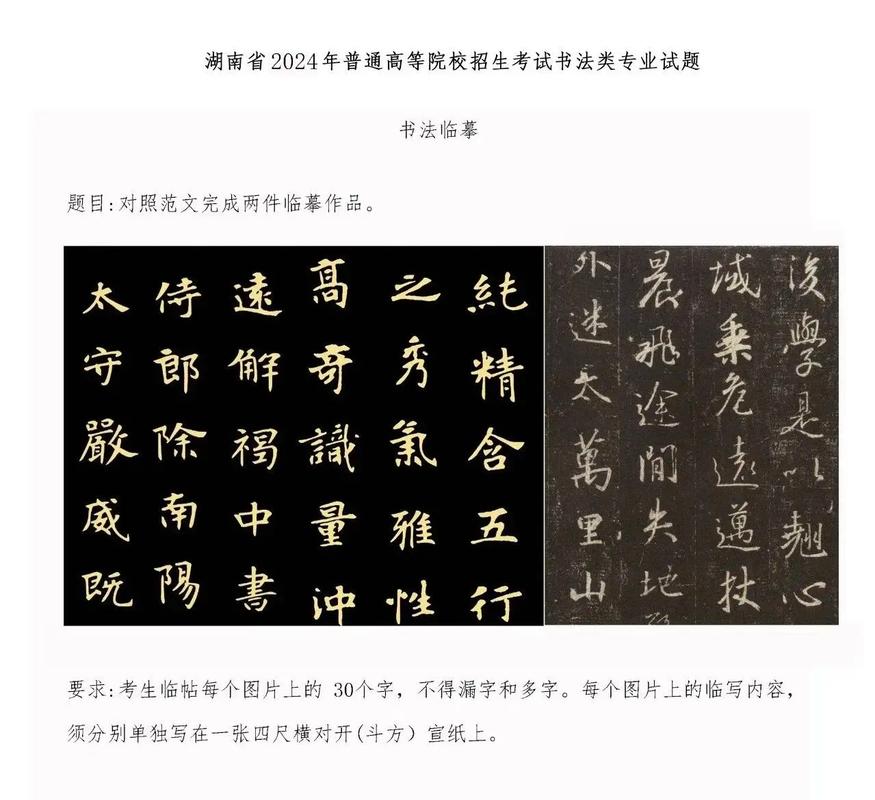 湖南省2024年普通高等院校招生考试书法类专业试题
书法临摹
题目:对照范文完成两件临摹作品。
純精含五行
之秀氣雅性
髙奇識量沖
遠解褐中書
侍郎除南陽
太守嚴威既
後學是以翹心
域乗危遠邁杖
晨飛途閒失地
外迷天萬里山
要求:考生临帖每个图片上的 30个字，不得漏字和多字。每个图片上的临写内容，
须分别单独写在一张四尺横对开(斗方）宣纸上。